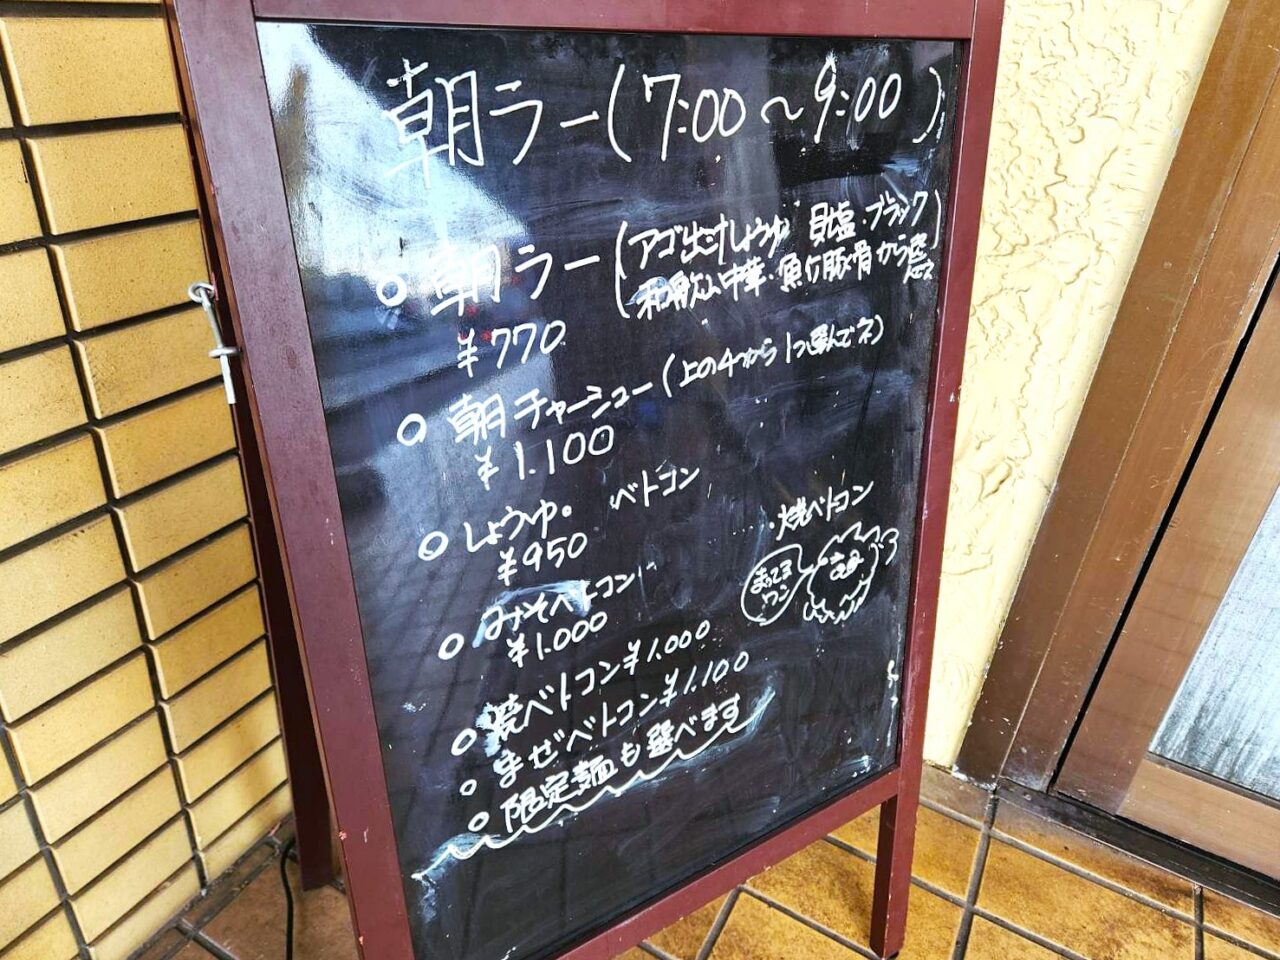 朝ラー(7:00〜9:00)
○ 朝ラー(アゴ出汁しょうゆ 貝塩・ブラック
和歌山中華・魚介豚骨から
¥770
○ 朝チャーシュー(上の4つから1つ選んでネ)
¥1.100
○ しょうゆ。 ベトコン
¥950
・焼ベトコン
まってる
ワン
○ みそベトコン
¥1.000
○ 焼ベトコン¥1.000
○ まぜベトコン¥1.100
○ 限定麺も選べます